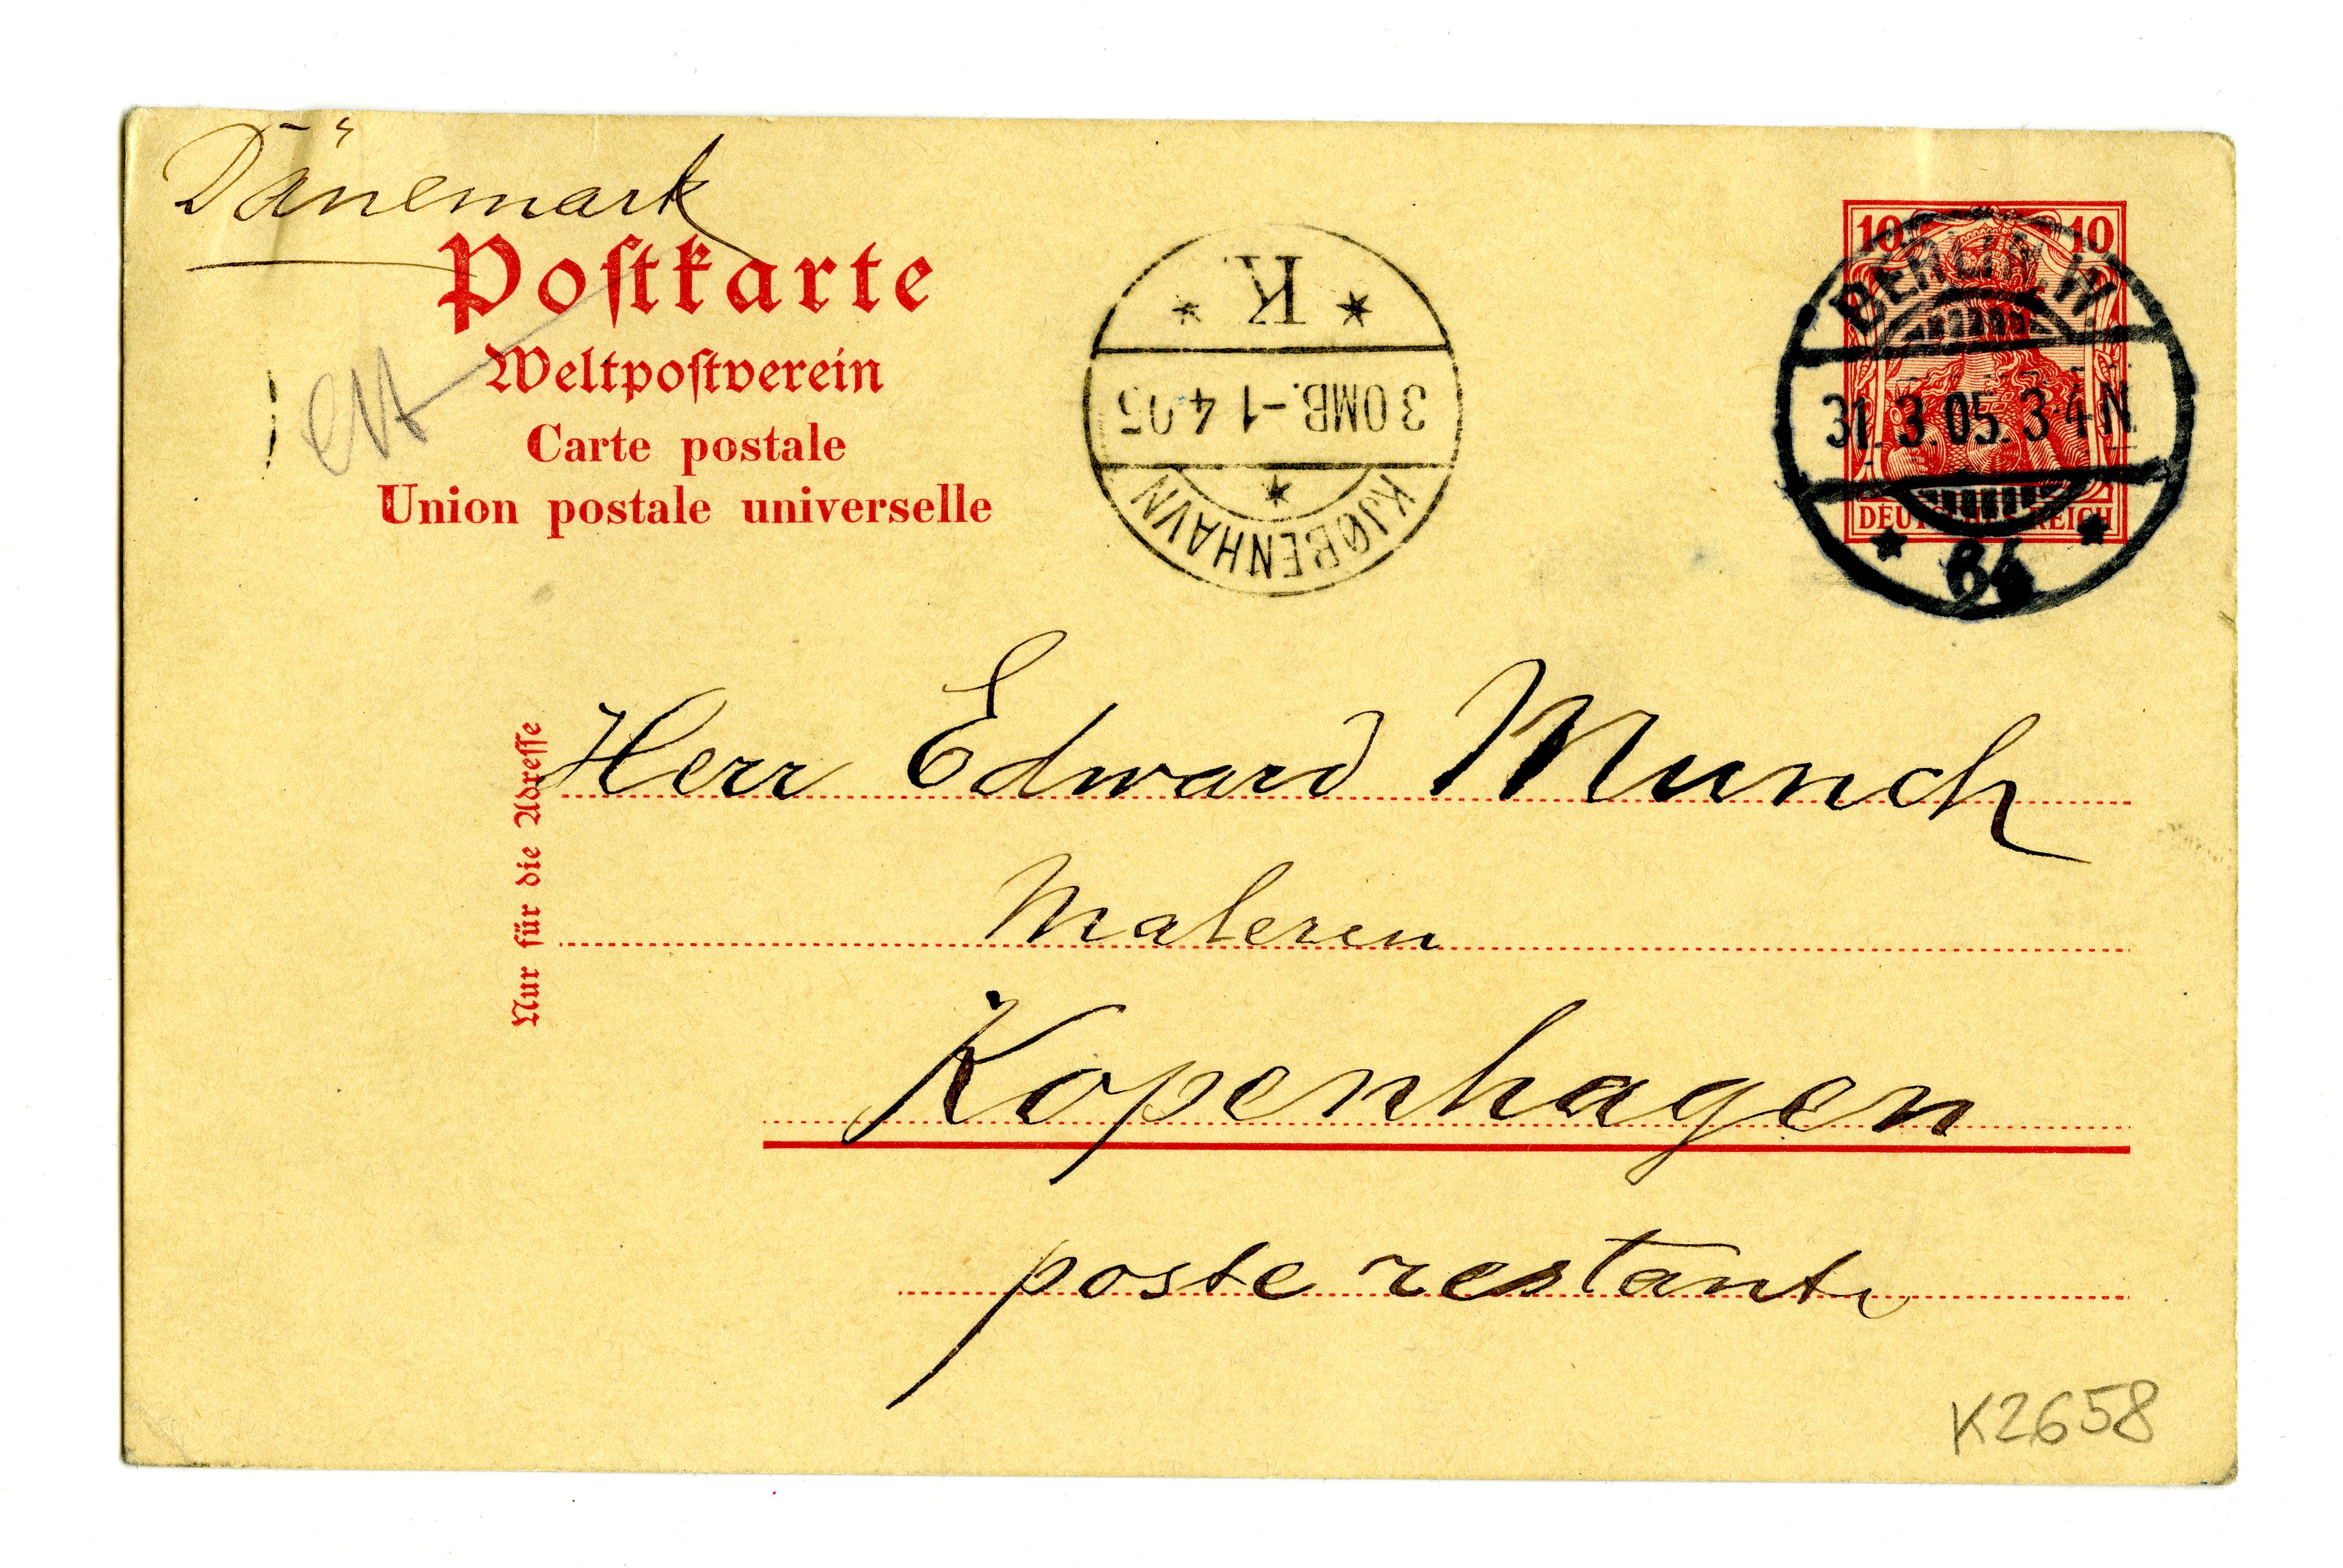 Dänemark
Postkarte
Weltpostverein
Carte postale
Union postale universelle
K
3 OMB. -1 4 05
KJØBENHAVN
10 10
BERLIN. W
31. 3. 05. 3-4 N.
DEUTSCHES REICH
64
Nur für die Adresse
Herr Edward Munch
Maleren
Kopenhagen
poste restante
K2658